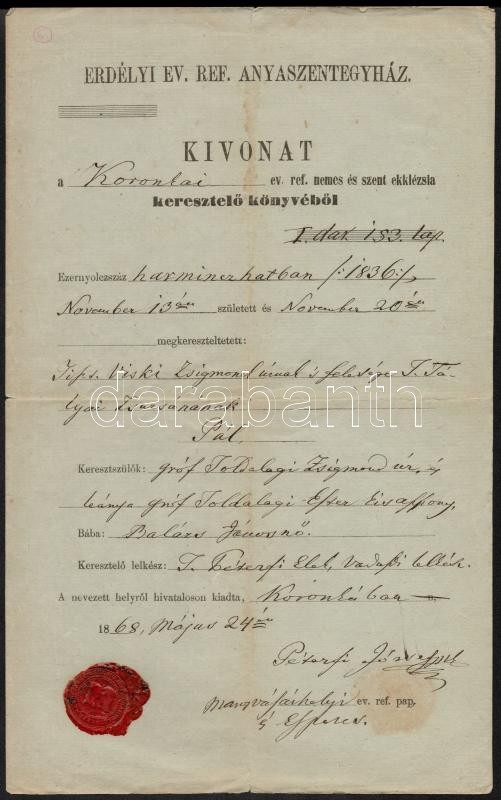 ERDÉLYI EV. REF. ANYASZENTEGYHÁZ.
KIVONAT
a Koronkai ev. ref. nemes és szent ekklézsia
keresztelő könyvéből
I. dar. 183. lap.
Ezernyolczszáz harminczhatban /:1836:/,
November 13án született és November 20án
megkereszteltetett:
Viski Zsigmond úrnak s felesége T.
Zsuzsánának
Pál
Keresztszülők: gróf Toldalagi Zsigmond úr, és
leánya gróf Toldalagi Eszter kisasszony.
Bába: Balázs Jánosnő.
Keresztelő lelkész: T. Péterfi Elek,
A nevezett helyről hivatalosan kiadta, Koronkában
1868, Május 24én
Péterfi József
Marosvásárhelyi ev. ref. pap.
és Esperes.
darabanth